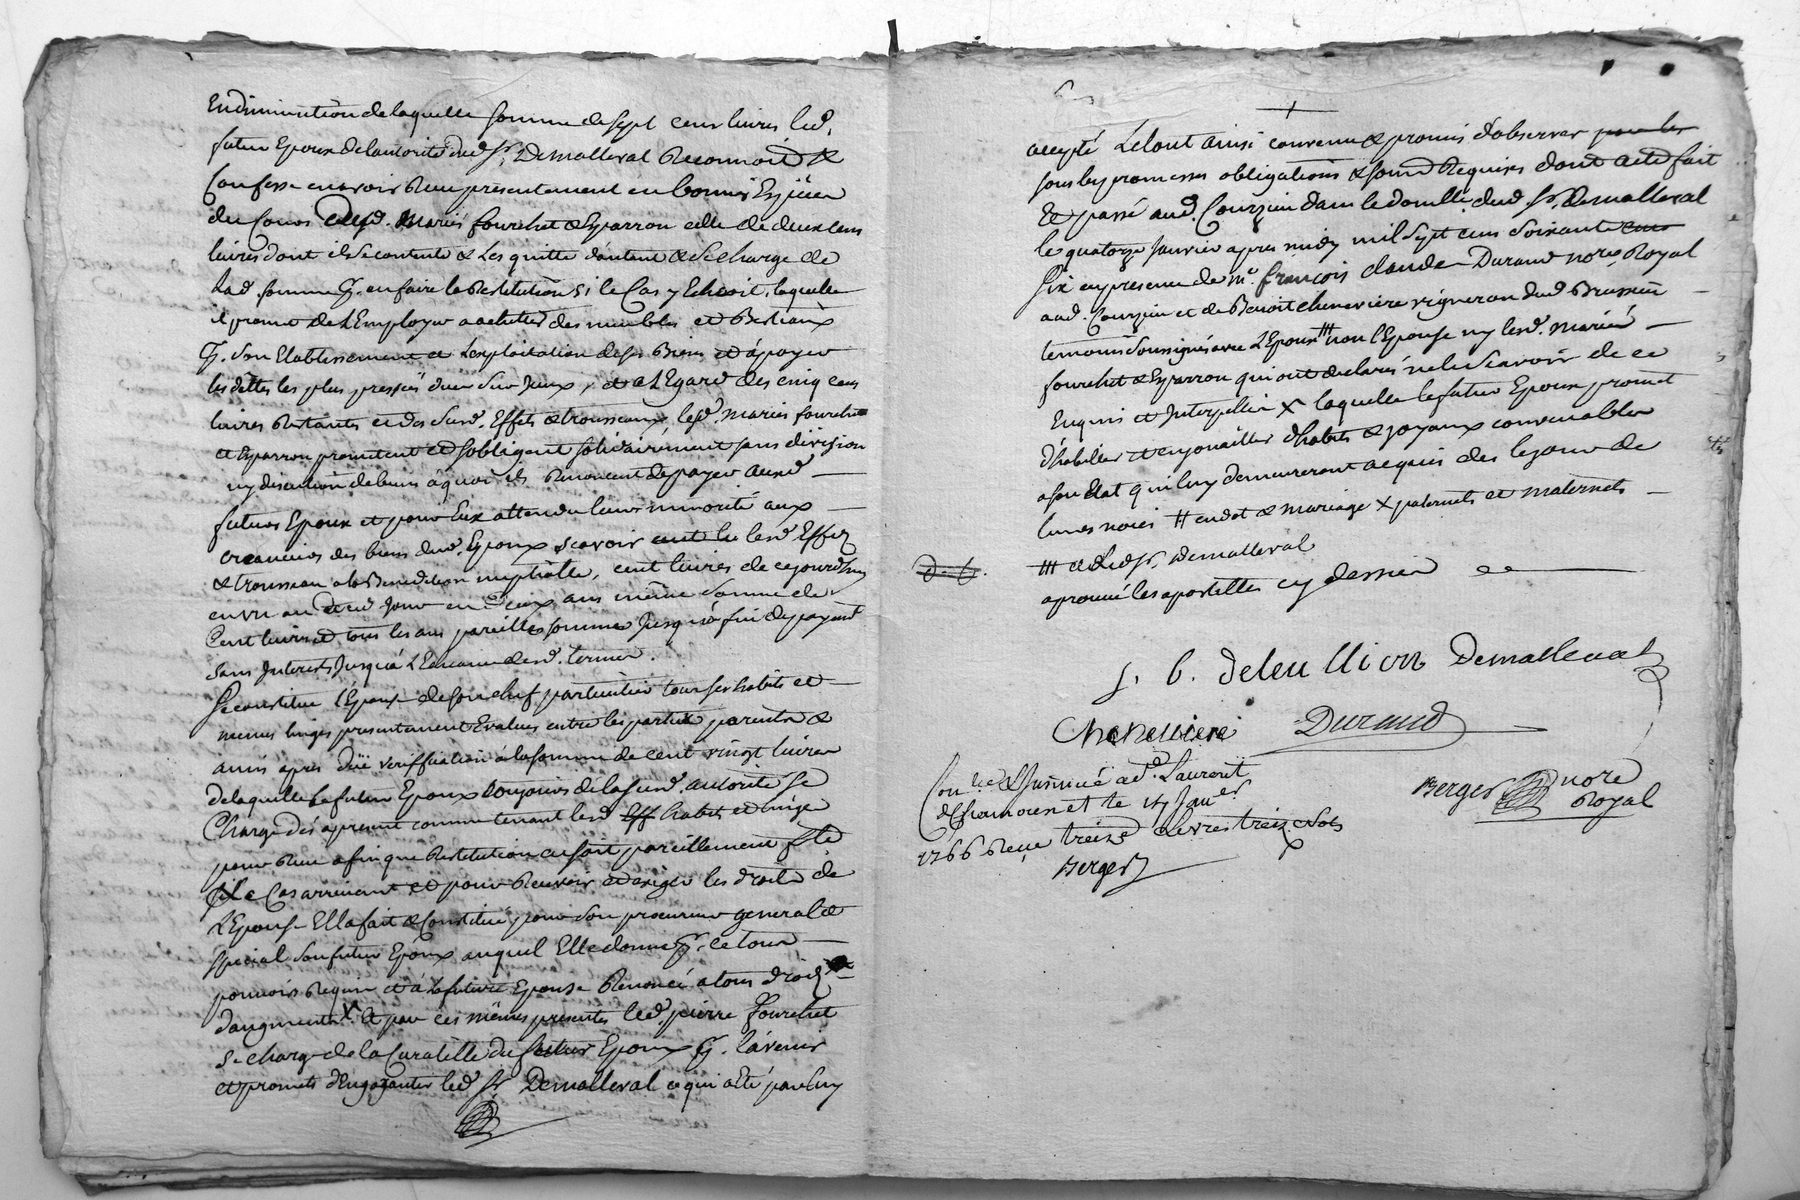 En diminution de laquelle somme de sept cens livres led.
futur Epoux de l'autorité dud. Sr. Demalleval Reconnoit &
Confesse en avoir Reçu présentement en bonnes Espèces
du Cours desd. Mariés fourchet & Esparron celle de deux cens
livres dont il se contente & les quitte d'autant & se charge de
lad. somme pr. en faire la Restitution si le Cas y Echoit, laquelle
il promet de l'Employer a achetter des meubles et Bestiaux
pr. son Etablissement et l'exploitation de ses Biens et à payer
les dettes les plus pressées dües sur Iceux, et a l'Egard des cinq cens
livres Restantes et des susd. Effets & trousseaux, lesd. mariés fourchet
et Esparron promettent et s'obligent solidairement sans division
ny discution de biens à quoi ils Renoncent de payer auxd.
futurs Epoux et pour Eux attendu leurs minorité aux
créanciers des biens dud. Epoux scavoir lesd. Effets
& trousseau a la Bénédiction nuptialle, cent livres de ce jourd'huy
en un an dud. Jour en Deux ans même somme de
Cent livres et tous les ans pareilles sommes Jusqu'à fin de payement
sans Interets Jusqu'à l'Echeance desd. termes.
Se constitue l'Epouse de son chef particulier tous ses habits et
menus linges presentement Evalués entre les parties parents &
amis après düe veriffication à la somme de cent vingt livres
de laquelle le futur Epoux toujours de la susd. autorité se
Charge dès apresent comme tenant lesd. Eff habits et linges
pour Reçu afin que Restitution en soit pareillement f[ai]te
si le Cas arrivant et pour Recevoir et exiger les droits de
l'Epouse Elle a fait & Constitué pour son procureur general &
special son futur Epoux auquel Elle donne pr. ce tout
pouvoir Requis et à la future Epouse Renoncé a tous droits
d'augments X Et par ces mêmes presentes led. pierre fourchet
se charge de la Curatelle du futur Epoux pr. l'avenir
et promets d'Engaranter led. Sr. Demalleval ce qui a été par luy
accepté Le tout ainsi convenu & promis d'observer pour les
sous les promesses obligations & soumd. Requises dont acte fait
Et passé aud. Courzieu dans le domicille dud. Sr. Demalleval
le quatorze Janvier après midy mil sept cens soixante cens
Six en presence de Me. françois claude Durand nore. Royal
aud. Courzieu et de Benoit chenevière vigneron dud. Brussieu
temoins soussignés avec l'Epoux ttt non l'Epouse ny lesd. mariés
fourchet & Esparron qui ont declarés ne le scavoir de ce
Enquis et Interpellés X laquelle le futur Epoux promet
d'habiller et enjouailler d'habits & joyaux convenables
a son Etat qui luy demeureront acquis des le jour de
leurs noces # en dot & mariage X paternels et maternels
ttt et led. Sr. Demalleval
aprouvé les apostilles cy dessus
D. b.
J. b. deleullion Demalleval
Cheneviere Durand
Berger nore
Royal
Con.lé & Insinué a St. Laurent
de Chamousset le 17 Janer
1766 Reçu treize livres treize sols
Berger